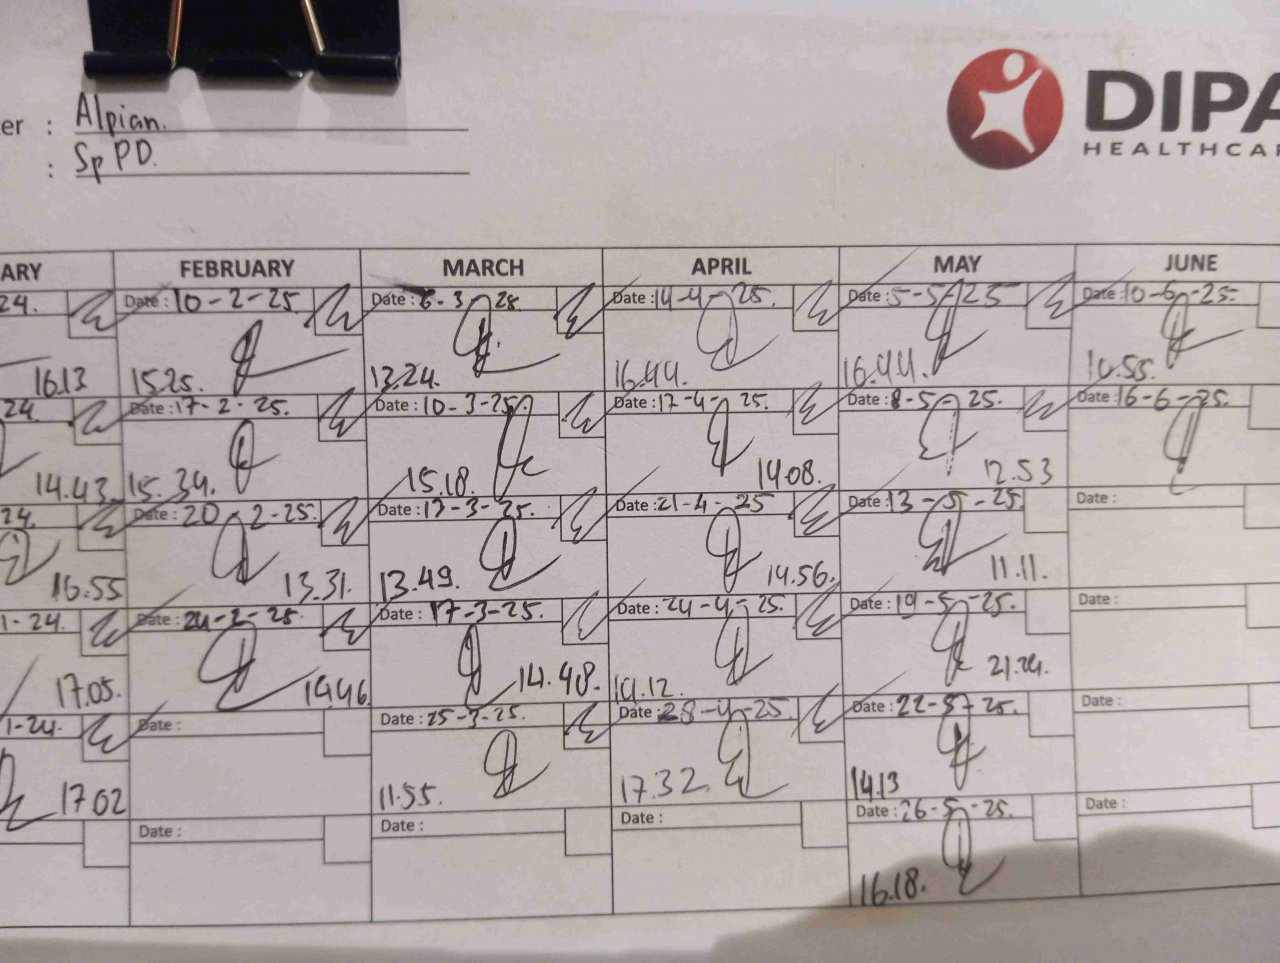 er : Alpian.
: Sp PD.
DIPA
HEALTHCAR
ARY FEBRUARY MARCH APRIL MAY JUNE
24. Date : 10-2-25. Date : 6-3 Date : 14-4-25. Date : 5-5-25 Date : 10-6-25.
16.13 15.25. 13.24. 16.44. 16.44.
24. Date : 17-2-25. Date : 10-3-25. Date : 17-4-25. Date : 8-5-25. Date : 16-6-25.
14.43 15.34. 15.18. 14.08. 12.53
24. Date : 20-2-25. Date : 13-3-25. Date : 21-4-25 Date : 13-5-25. Date :
16.55 13.31. 13.49. 14.56. 11.11.
1-24. Date : 24-2-25. Date : 17-3-25. Date : 24-4-25. Date : 19-5-25. Date :
17.05. 14.46. 14.48. 14.12. 21.24.
1-24. Date : Date : 25-3-25. Date : 28-4-25. Date : 22-5-25. Date :
17.02 11.55. 17.32. 14.13
Date : Date : Date : Date : 26-5-25. Date :
16.18.